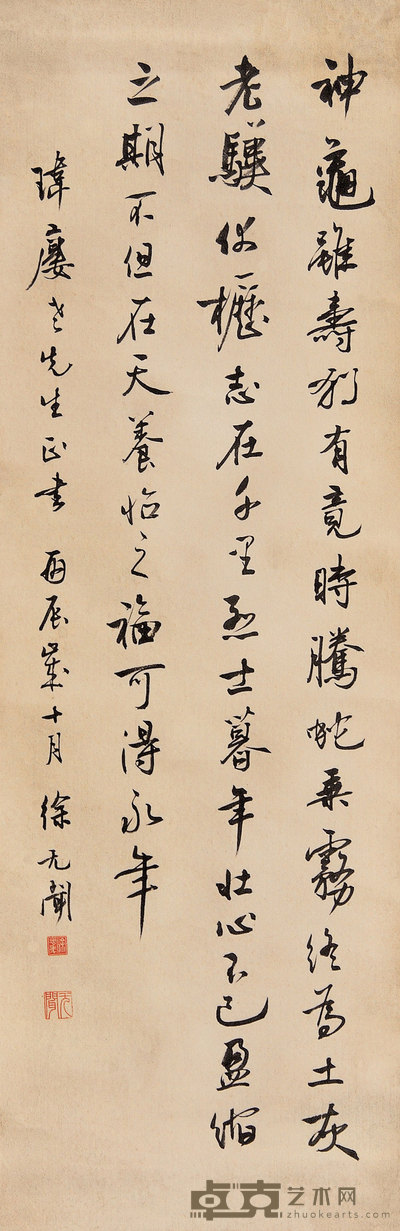 神龜雖壽猶有竟時騰蛇乘霧終為土灰
老驥伏櫪志在千里烈士暮年壯心不已盈縮
之期不但在天養怡之福可得永年
瑋廔老先生正書 丙辰歲十月 徐无聞
无聞
卓克艺术网
zhuokearts.com